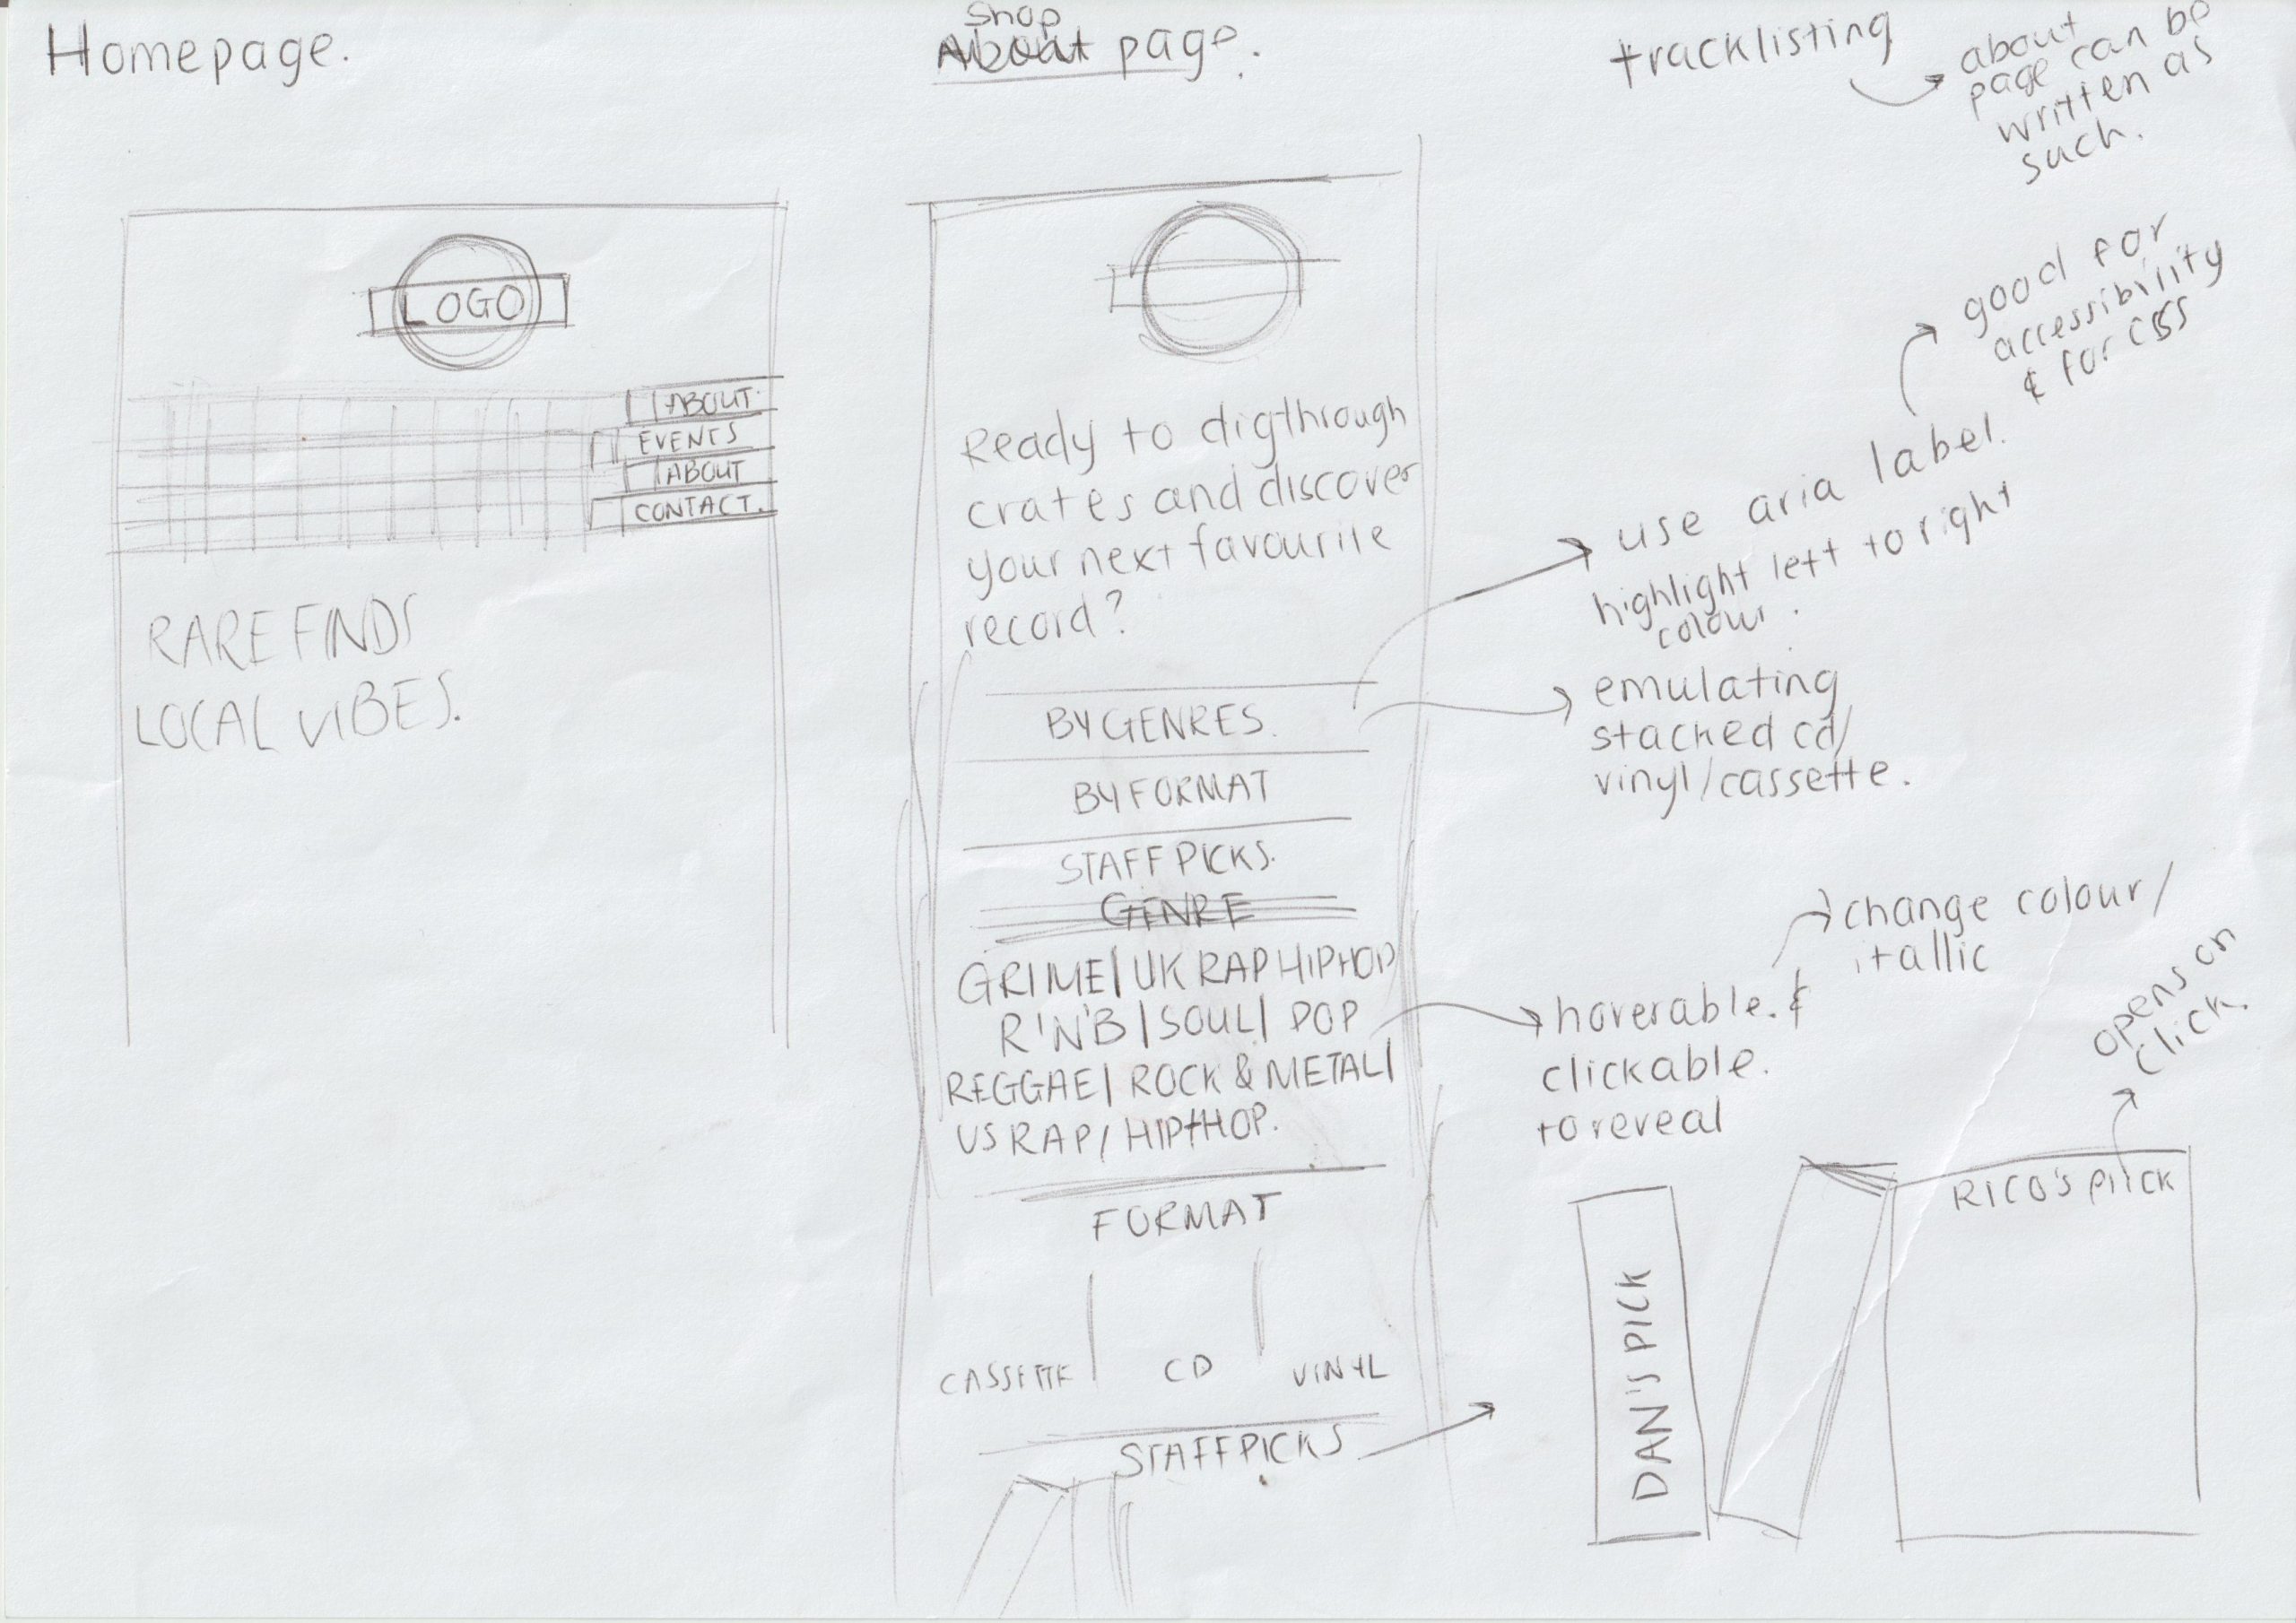 Homepage.
Shop
About page.
tracklisting
about
page can be
written as
such.
LOGO
ABOUT.
EVENTS
ABOUT
CONTACT.
RARE FINDS
LOCAL VIBES.
Ready to digthrough
crates and discover
your next favourite
record?
BY GENRES.
BY FORMAT
STAFF PICKS.
GENRE
GRIME| UK RAP HIPHOP
R'N'B | SOUL | POP
REGGAE | ROCK & METAL |
US RAP / HIPHOP.
FORMAT
CASSETTE | CD | VINYL
STAFF PICKS
good for
accessibility
& for css
use aria label.
highlight left to right
colour.
emulating
stacked cd/
vinyl/cassette.
change colour/
itallic
hoverable. &
clickable.
to reveal
opens on
click.
DAN'S PICK
RICO'S PIICK